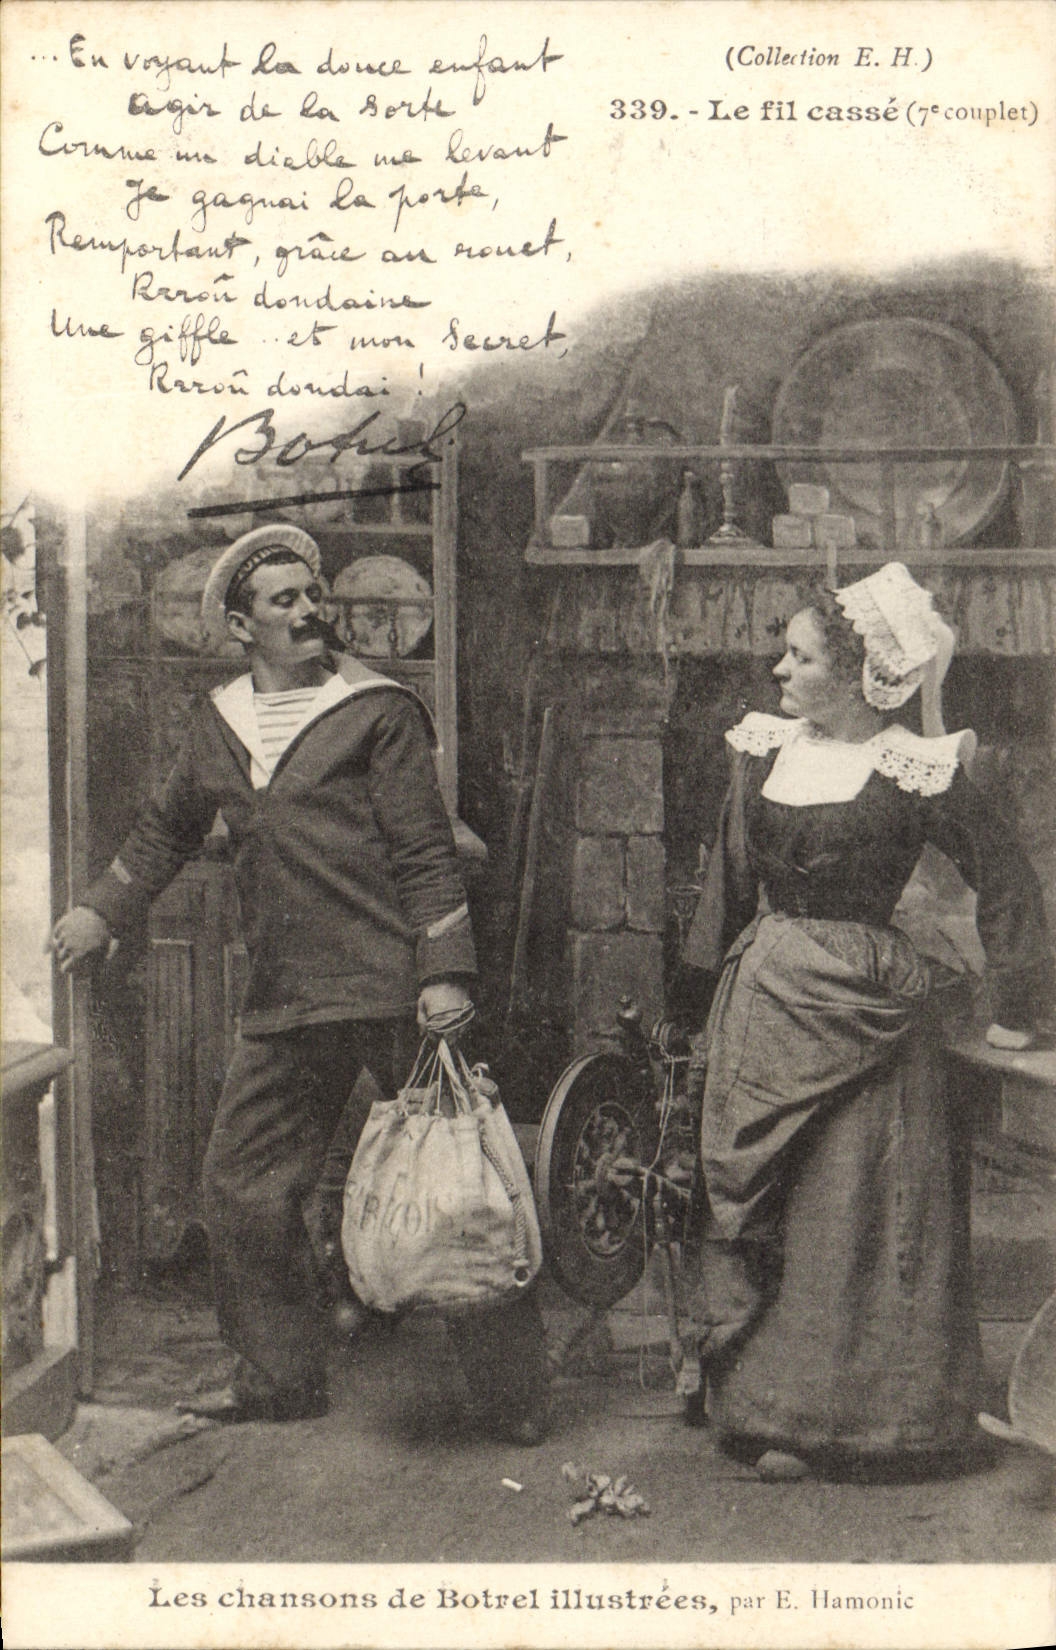 ...En voyant la douce enfant
Agir de la sorte
Comme un diable me levant
Je gagnai la porte,
Remportant, grâce au rouet,
Rrroû dondaine
Une giffle ... et mon secret,
Rrroû dondai !
Botrel
(Collection E. H.)
339. - Le fil cassé (7e couplet)
Les chansons de Botrel illustrées, par E. Hamonic